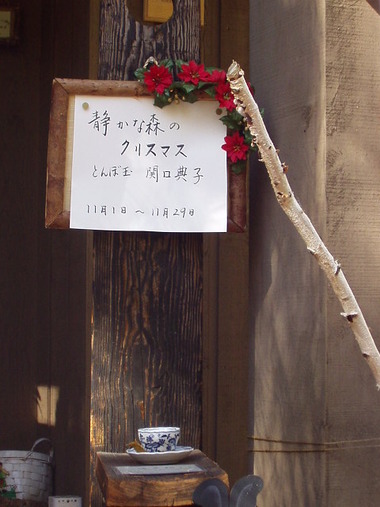 静かな森の
クリスマス
とんぼ玉 関口典子
11月1日 〜 11月29日